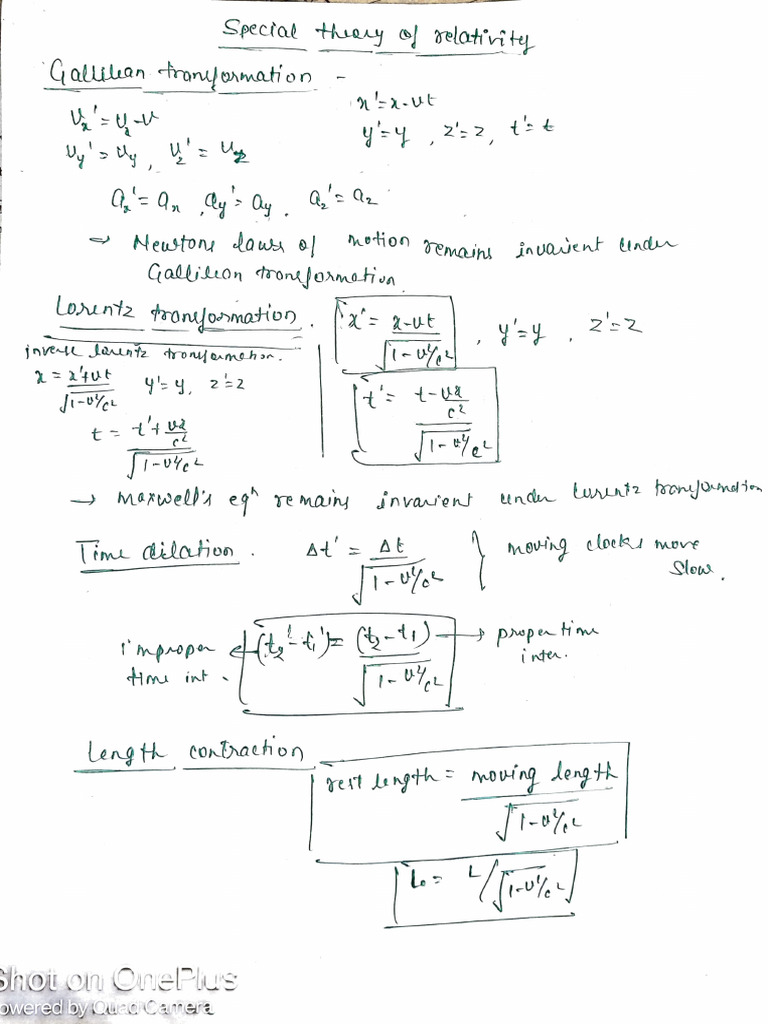 Special theory of relativity
Gallilean transformation -
x' = x - vt
Ux' = Ux - v
y' = y , z' = z , t' = t
Uy' = Uy , Uz' = Uz
ax' = ax , ay' = ay , az' = az
→ Newtons laws of motion remains invarient under
Gallilean transformation
Lorentz transformation . x' = (x - vt) / √(1 - v²/c²) , y' = y , z' = z
inverse lorentz transformation.
x = (x' + vt) / √(1 - v²/c²) y' = y, z' = z
t' = (t - vx/c²) / √(1 - v²/c²)
t = (t' + vx/c²) / √(1 - v²/c²)
→ Maxwell's eqⁿ remains invarient under Lorentz transformation
Time dilation . Δt' = Δt / √(1 - v²/c²) } moving clocks move
slow.
improper time int. ← (t₂' - t₁') = (t₂ - t₁) / √(1 - v²/c²) → proper time inter.
Length contraction
rest length = moving length / √(1 - v²/c²)
L₀ = L / √(1 - v²/c²)
Shot on OnePlus
Powered by Quad Camera